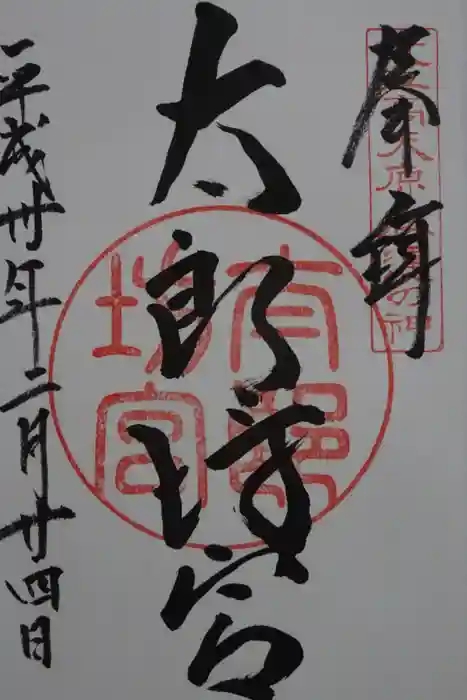 奉拝
太郎坊宮
平成卅年二月廿四日
太郎
坊宮
の神